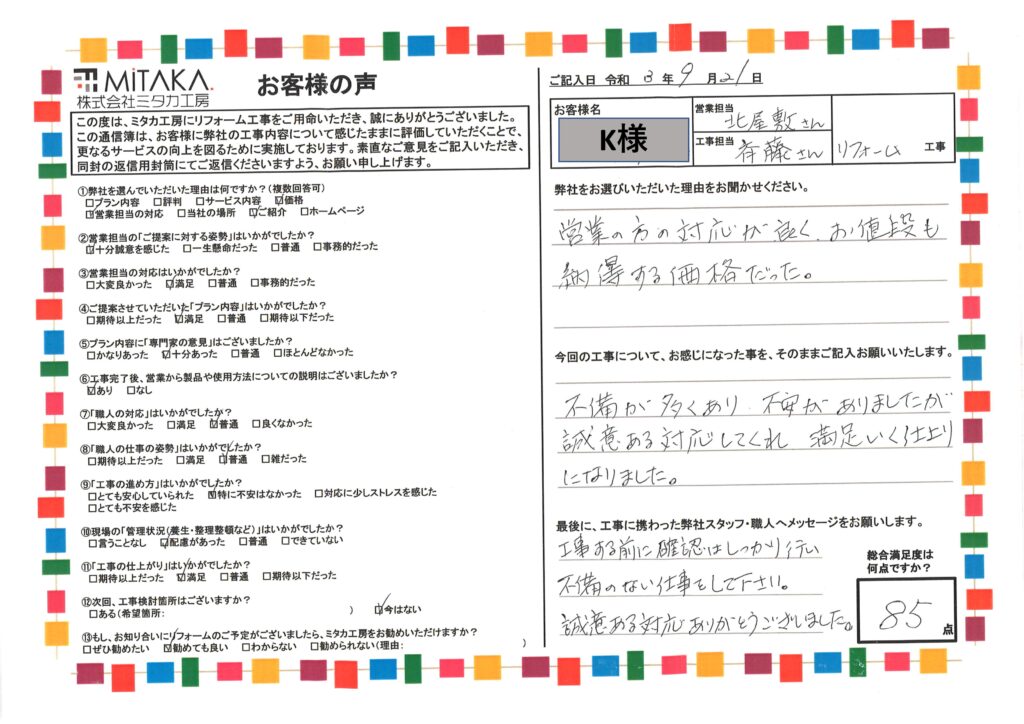 MiTAKA.
株式会社ミタカ工房
お客様の声
この度は、ミタカ工房にリフォーム工事をご用命いただき、誠にありがとうございました。
この通信簿は、お客様に弊社の工事内容について感じたままに評価していただくことで、
更なるサービスの向上を図るために実施しております。素直なご意見をご記入いただき、
同封の返信用封筒にてご返信くださいますよう、お願い申し上げます。
①弊社を選んでいただいた理由は何ですか？(複数回答可)
□プラン内容 □評判 □サービス内容 ☑価格
☑営業担当の対応 □当社の場所 ☑ご紹介 □ホームページ
②営業担当の「ご提案に対する姿勢」はいかがでしたか？
☑十分誠意を感じた □一生懸命だった □普通 □事務的だった
③営業担当の対応はいかがでしたか？
□大変良かった ☑満足 □普通 □事務的だった
④ご提案させていただいた「プラン内容」はいかがでしたか？
□期待以上だった ☑満足 □普通 □期待以下だった
⑤プラン内容に「専門家の意見」はございましたか？
□かなりあった ☑十分あった □普通 □ほとんどなかった
⑥工事完了後、営業から製品や使用方法についての説明はございましたか？
☑あり □なし
⑦「職人の対応」はいかがでしたか？
□大変良かった □満足 ☑普通 □良くなかった
⑧「職人の仕事の姿勢」はいかがでしたか？
□期待以上だった □満足 ☑普通 □雑だった
⑨「工事の進め方」はいかがでしたか？
□とても安心していられた ☑特に不安はなかった □対応に少しストレスを感じた
□とても不安を感じた
⑩現場の「管理状況(養生・整理整頓など)」はいかがでしたか？
□言うことなし ☑配慮があった □普通 □できていない
⑪「工事の仕上がり」はいかがでしたか？
□期待以上だった ☑満足 □普通 □期待以下だった
⑫次回、工事検討箇所はございますか？
□ある(希望箇所: ) ☑今はない
⑬もし、お知り合いにリフォームのご予定がございましたら、ミタカ工房をお勧めいただけますか？
□ぜひ勧めたい ☑勧めても良い □わからない □勧められない(理由: )
ご記入日 令和 3 年 9 月 21 日
お客様名
K様
営業担当
北屋敷さん
工事担当
斉藤さん
リフォーム 工事
弊社をお選びいただいた理由をお聞かせください。
営業の方の対応が良く、お値段も
納得する価格だった。
今回の工事について、お感じになった事を、そのままご記入お願いいたします。
不備が多くあり、不安がありましたが
誠意ある対応してくれ 満足いく仕上り
になりました。
最後に、工事に携わった弊社スタッフ・職人へメッセージをお願いします。
工事する前に確認はしっかり行い
不備のない仕事をして下さい。
誠意ある対応ありがとうございました。
総合満足度は
何点ですか？
85点